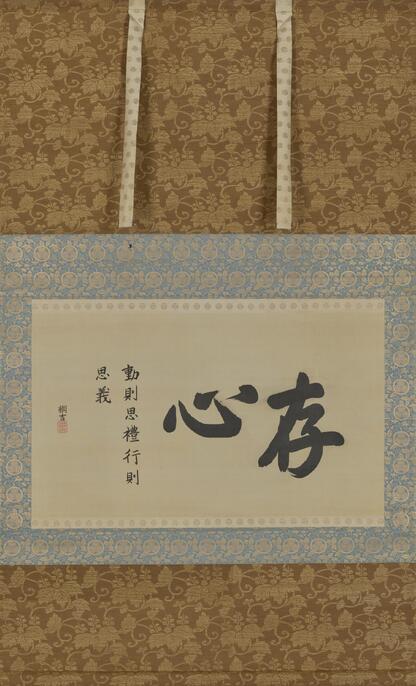 存心
動則思禮行則
思義